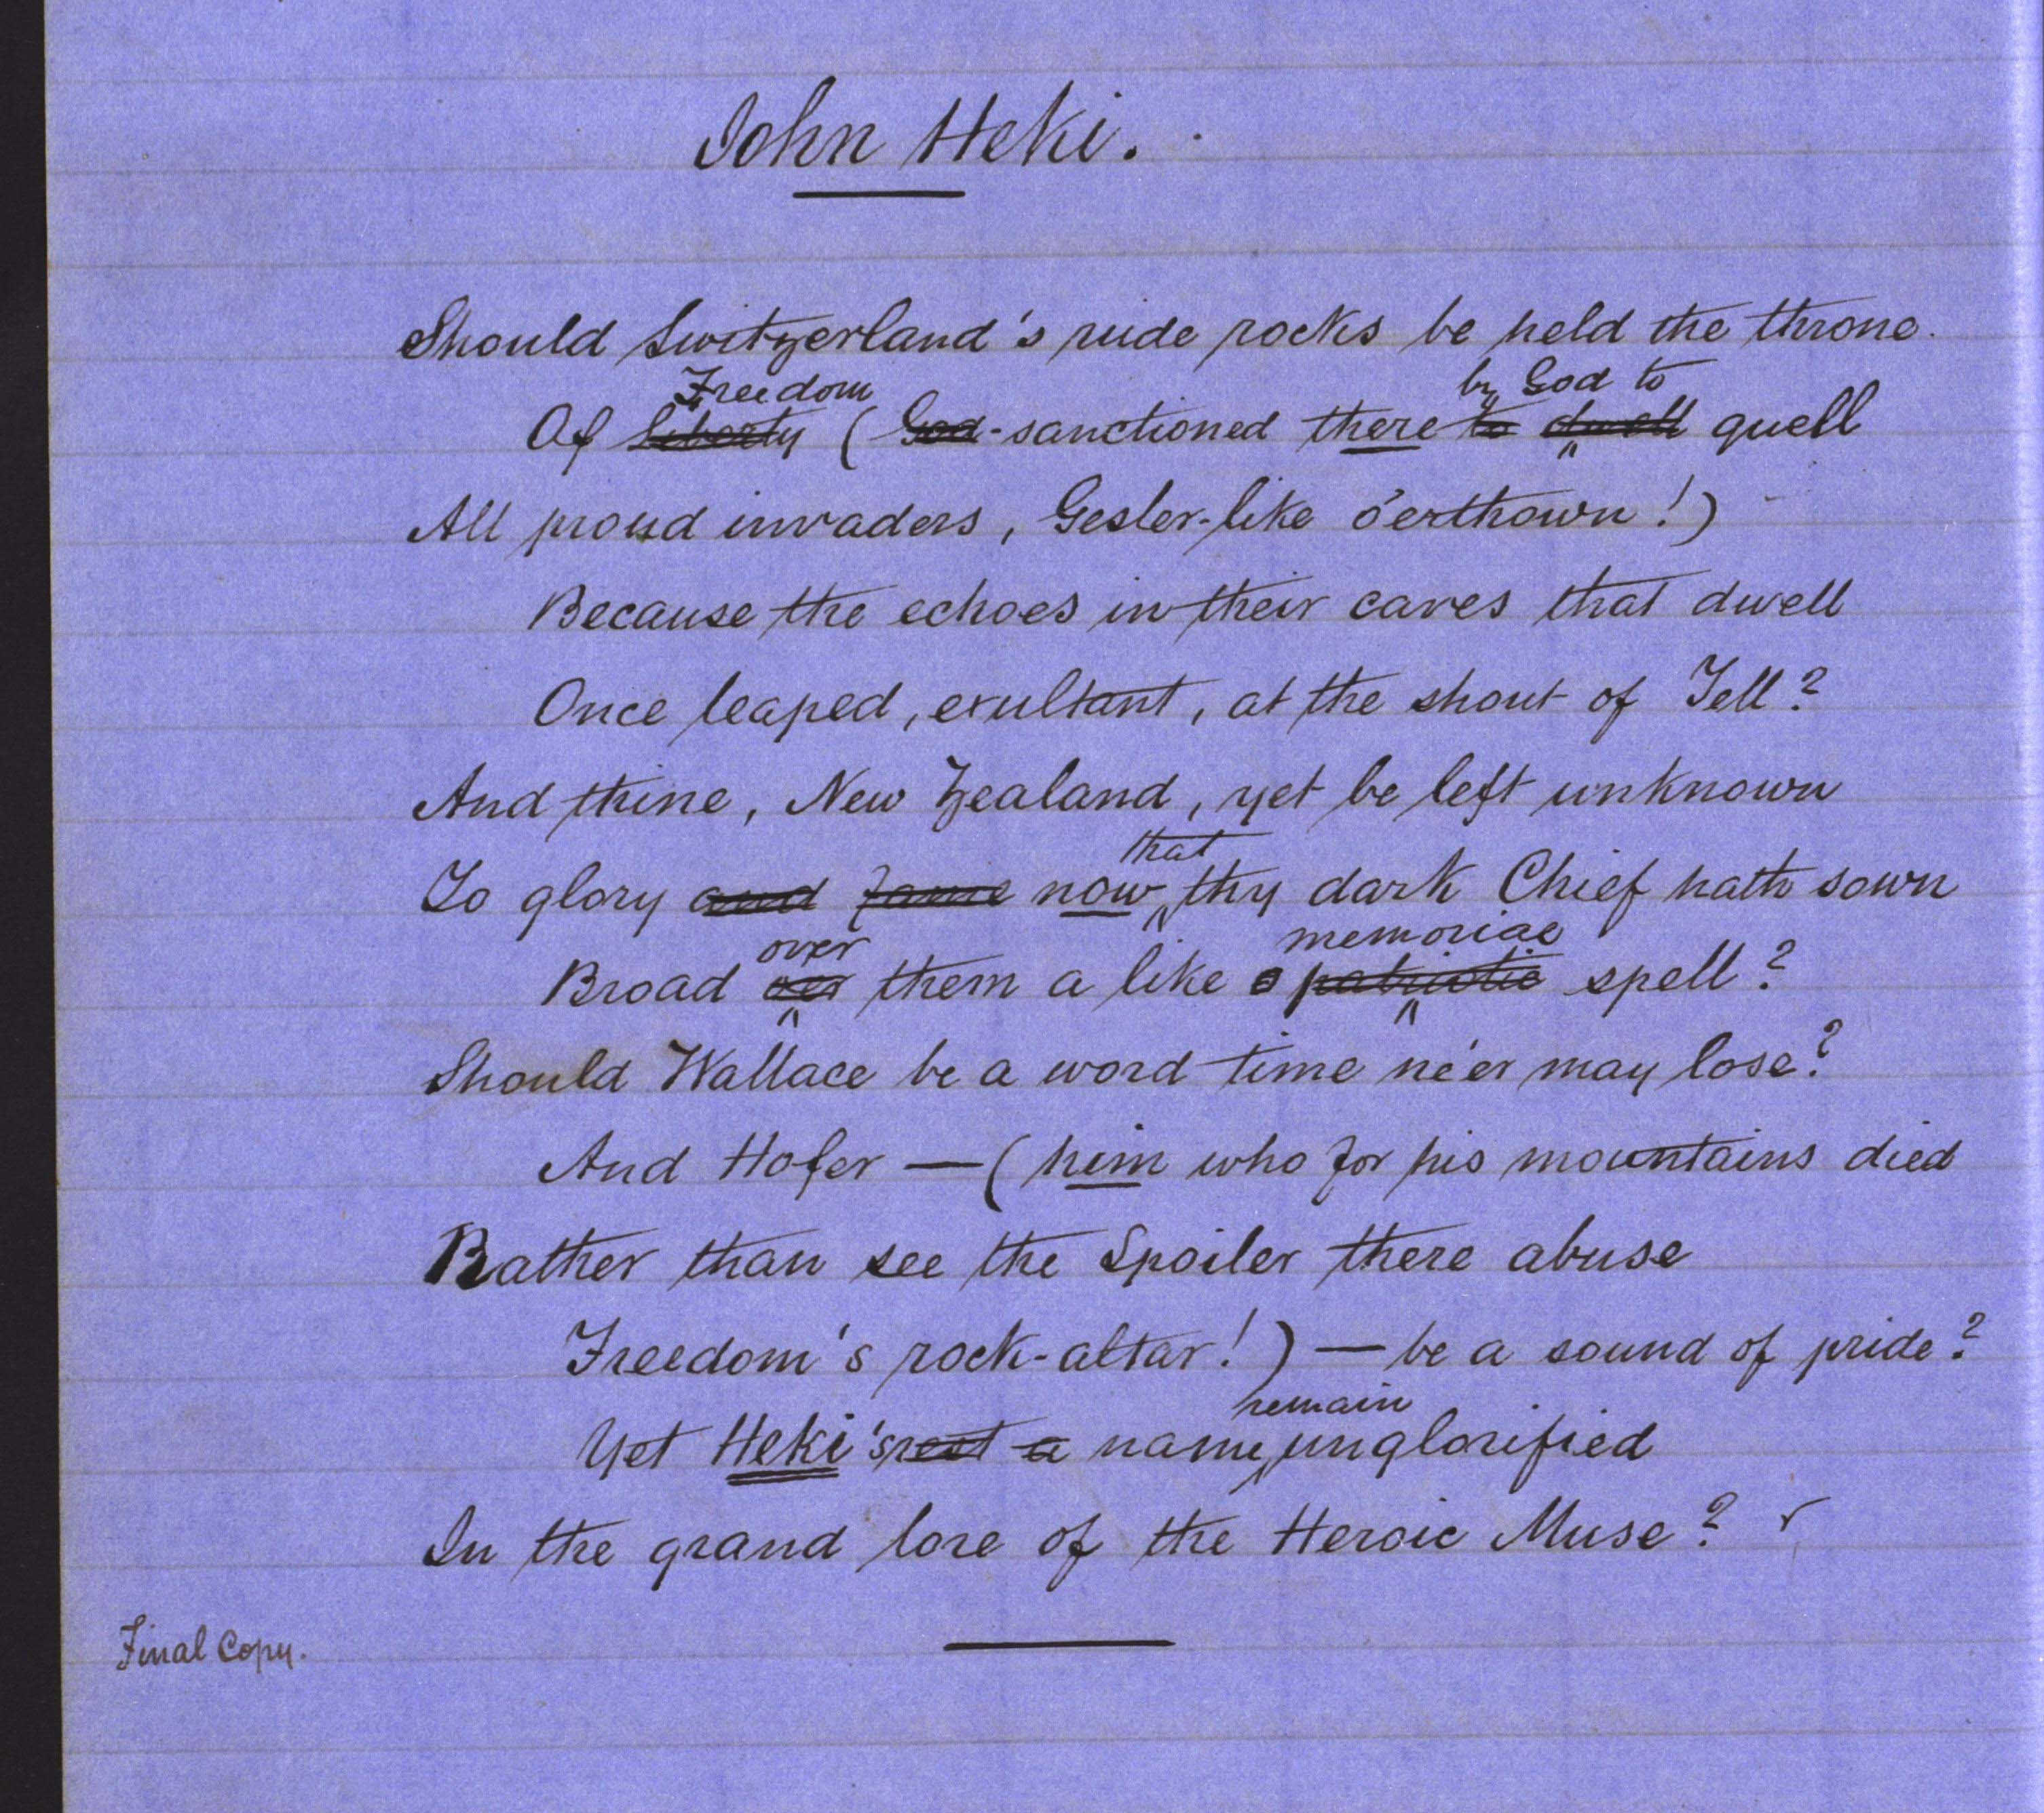 John Heki.
Should Switzerland's rude rocks be held the throne.
Freedom by God to
Of Liberty (God-sanctioned there to dwell quell
All proud invaders, Gesler-like o'erthown!)
Because the echoes in their caves that dwell
Once leaped, exultant, at the shout of Tell?
And thine, New Zealand, yet be left unknown
that
To glory and fame now thy dark Chief hath sown
over memorial
Broad o'er them a like patriotic spell?
Should Wallace be a word time ne'er may lose?
And Hofer — (him who for his mountains died
Rather than see the Spoiler there abuse
Freedom's rock-altar!) — be a sound of pride?
remain
Yet Heki's rest a name unglorified
In the grand lore of the Heroic Muse?
Final Copy.